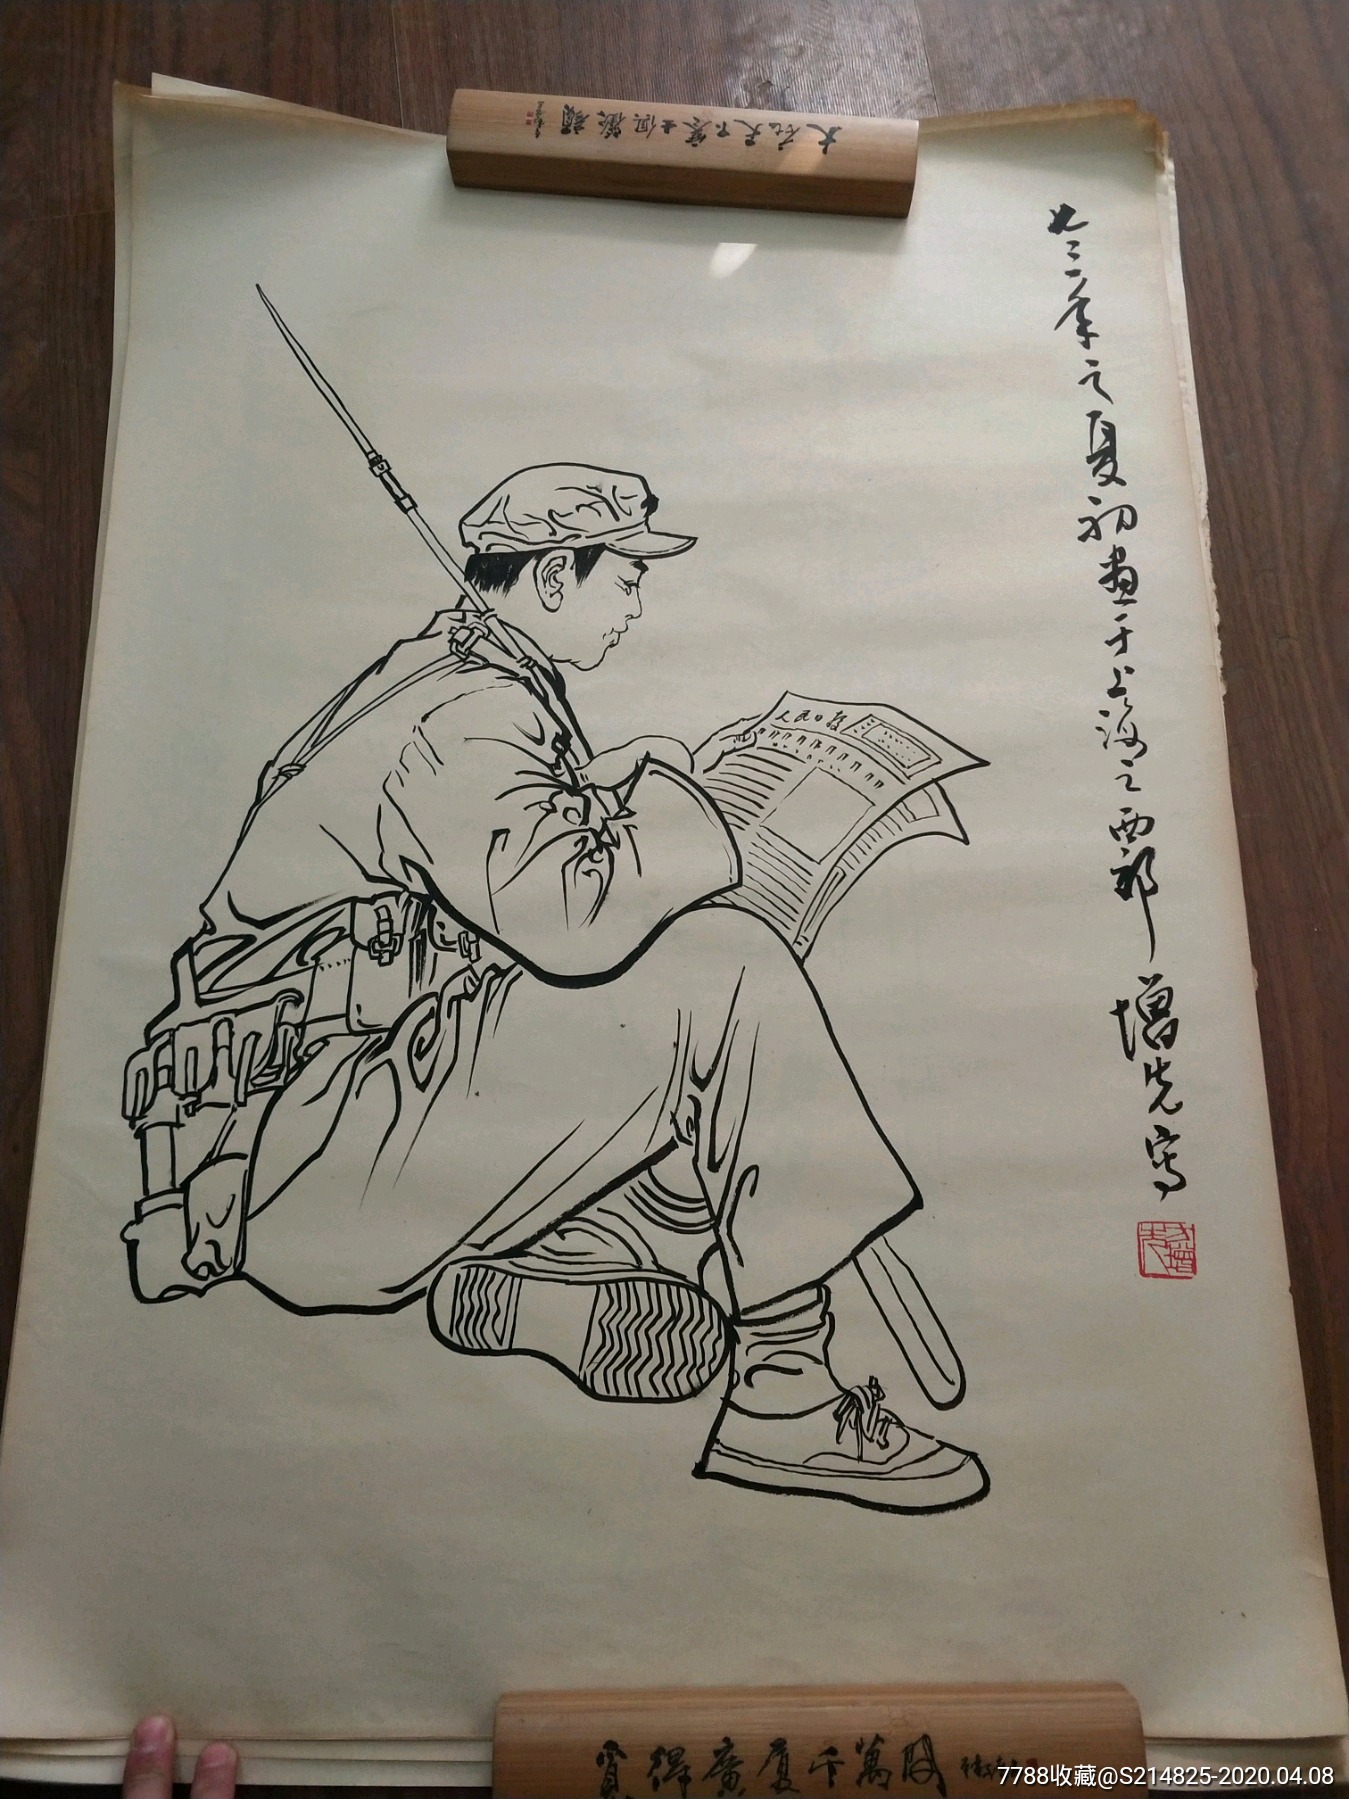 大庇天下寒士俱歡顔
七三年之夏初畫于上海之西郊 增先写
人民日报
安得廣厦千萬間
7788收藏@S214825-2020.04.08